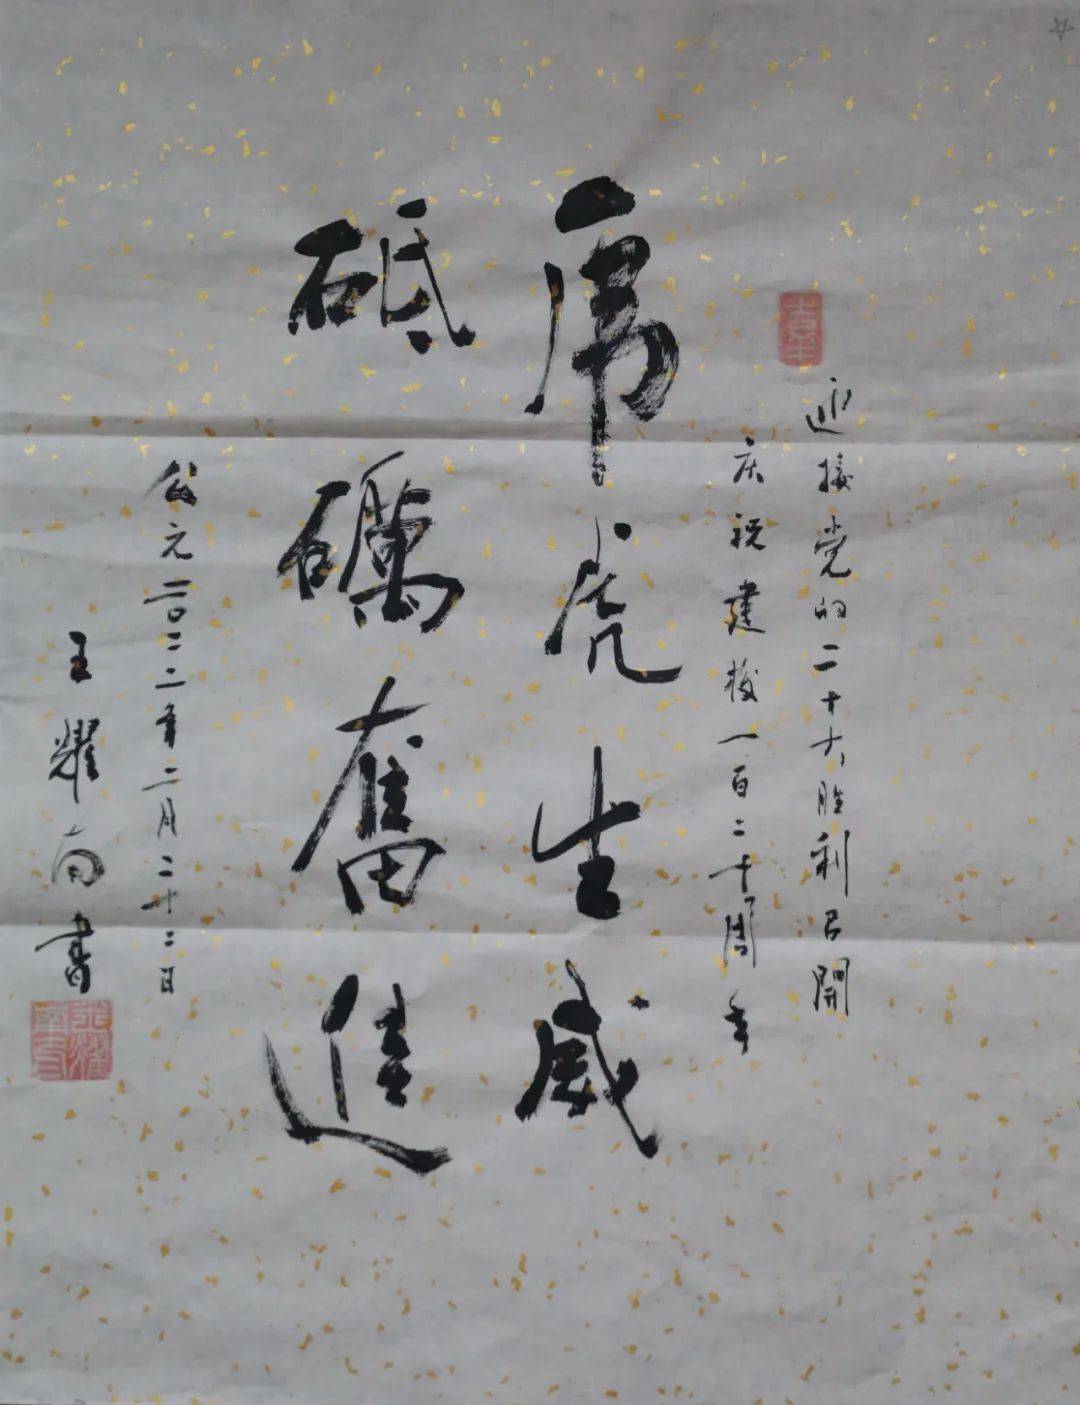 迎接党的二十大胜利召開
庆祝建校一百二十周年
虎虎生威
砥礪奮進
公元二〇二二年二月二十二日
王耀南書